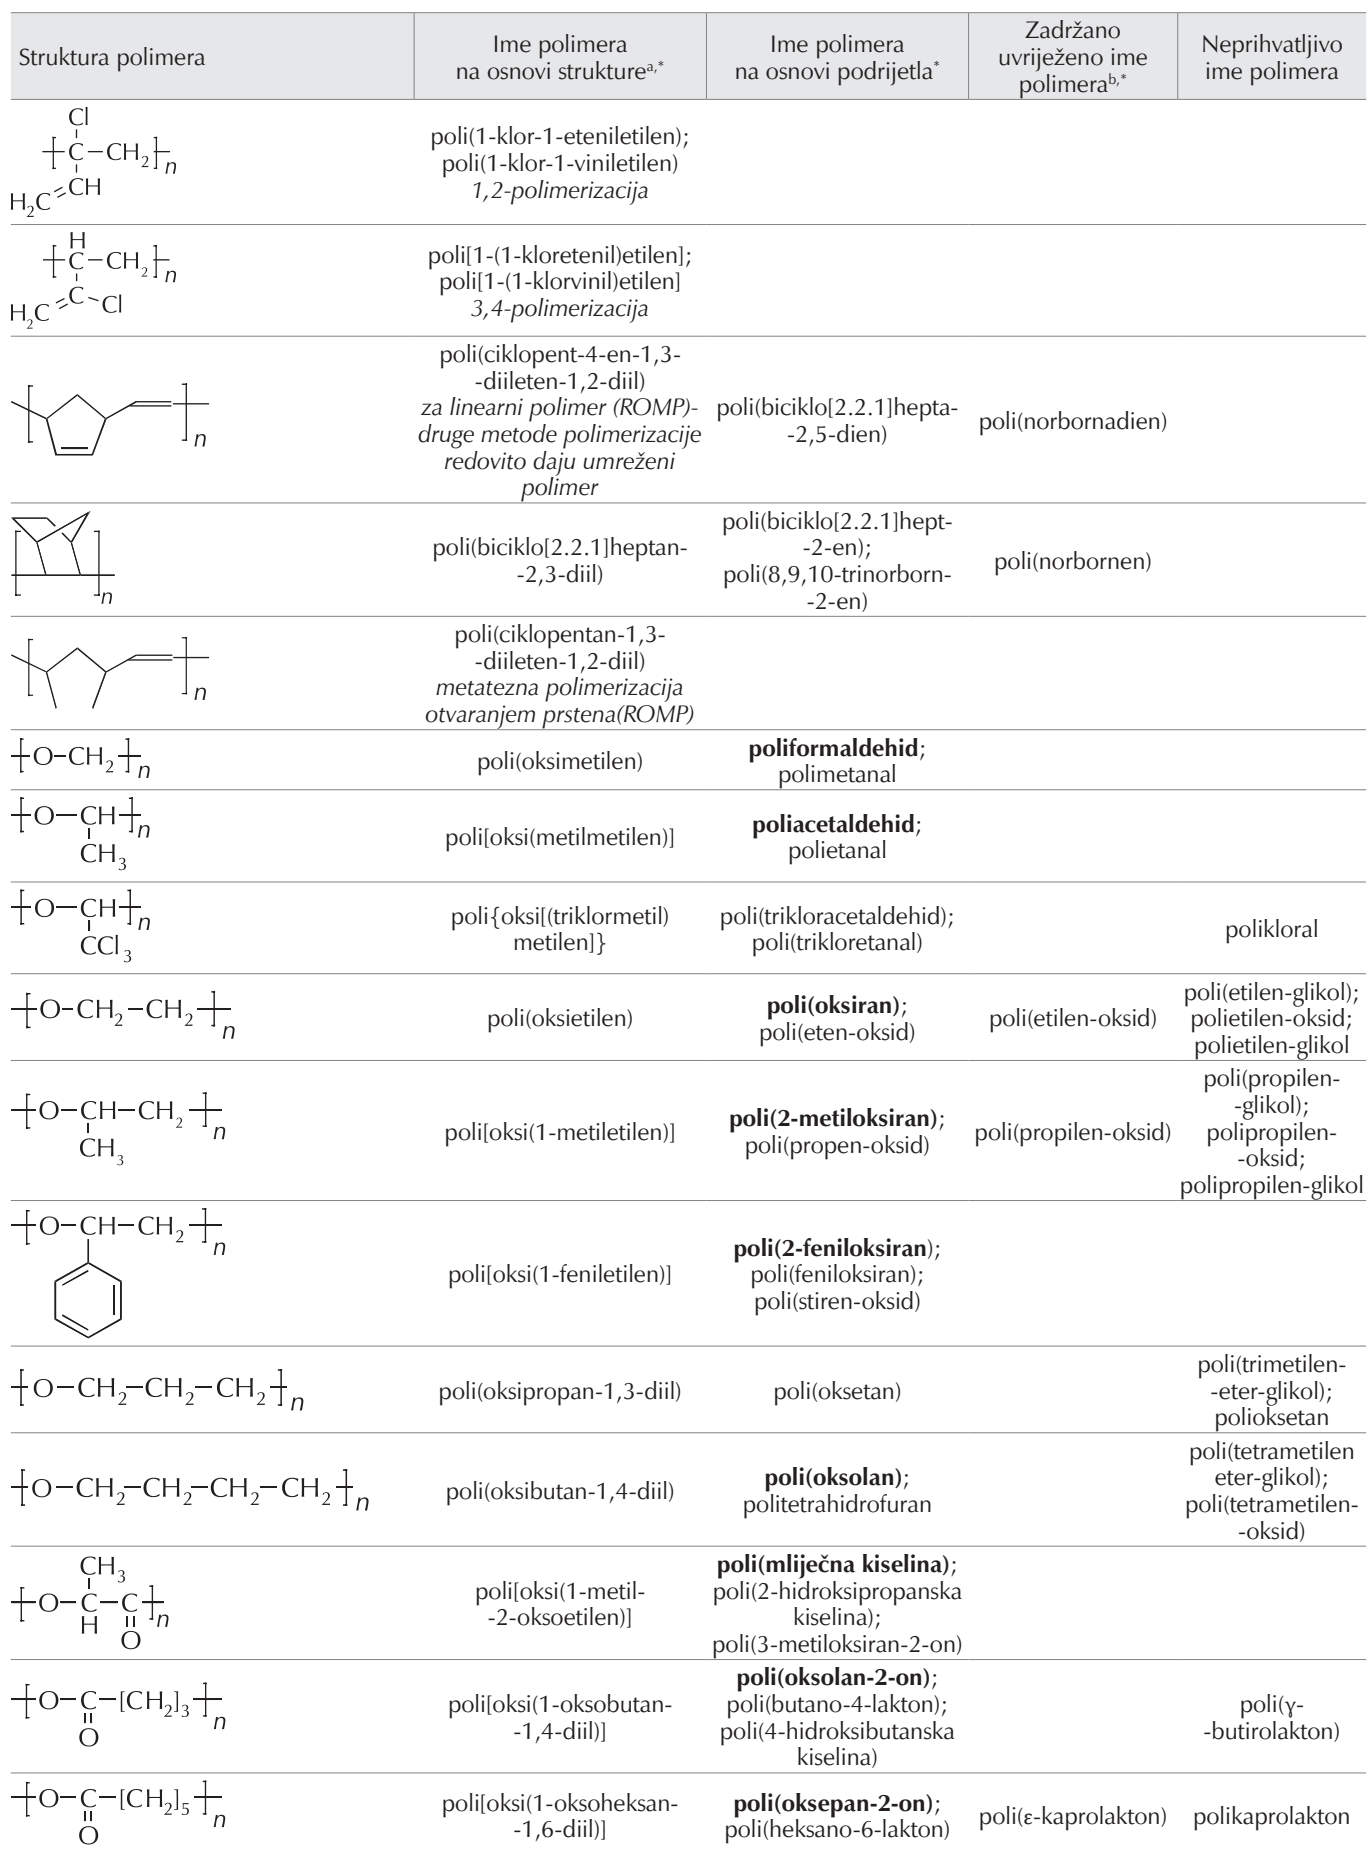 Struktura polimera
Ime polimera
na osnovi strukture^a,*
Ime polimera
na osnovi podrijetla^*
Zadržano
uvriježeno ime
polimera^b,*
Neprihvatljivo
ime polimera
Cl
[C–CH2]n
CH
H2C
poli(1-klor-1-eteniletilen);
poli(1-klor-1-viniletilen)
1,2-polimerizacija
H
[C–CH2]n
C Cl
H2C
poli[1-(1-kloretenil)etilen];
poli[1-(1-klorvinil)etilen]
3,4-polimerizacija
n
poli(ciklopent-4-en-1,3-
-diileten-1,2-diil)
za linearni polimer (ROMP)-
druge metode polimerizacije
redovito daju umreženi
polimer
poli(biciklo[2.2.1]hepta-
-2,5-dien)
poli(norbornadien)
n
poli(biciklo[2.2.1]heptan-
-2,3-diil)
poli(biciklo[2.2.1]hept-
-2-en);
poli(8,9,10-trinorborn-
-2-en)
poli(norbornen)
n
poli(ciklopentan-1,3-
-diileten-1,2-diil)
metatezna polimerizacija
otvaranjem prstena(ROMP)
[O–CH2]n
poli(oksimetilen)
poliformaldehid;
polimetanal
[O–CH]n
CH3
poli[oksi(metilmetilen)]
poliacetaldehid;
polietanal
[O–CH]n
CCl3
poli{oksi[(triklormetil)
metilen]}
poli(trikloracetaldehid);
poli(trikloretanal)
polikloral
[O–CH2–CH2]n
poli(oksietilen)
poli(oksiran);
poli(eten-oksid)
poli(etilen-oksid)
poli(etilen-glikol);
polietilen-oksid;
polietilen-glikol
[O–CH–CH2]n
CH3
poli[oksi(1-metiletilen)]
poli(2-metiloksiran);
poli(propen-oksid)
poli(propilen-oksid)
poli(propilen-
-glikol);
polipropilen-
-oksid;
polipropilen-glikol
[O–CH–CH2]n
poli[oksi(1-feniletilen)]
poli(2-feniloksiran);
poli(feniloksiran);
poli(stiren-oksid)
[O–CH2–CH2–CH2]n
poli(oksipropan-1,3-diil)
poli(oksetan)
poli(trimetilen-
-eter-glikol);
polioksetan
[O–CH2–CH2–CH2–CH2]n
poli(oksibutan-1,4-diil)
poli(oksolan);
politetrahidrofuran
poli(tetrametilen
eter-glikol);
poli(tetrametilen-
-oksid)
CH3
[O–C–C]n
H O
poli[oksi(1-metil-
-2-oksoetilen)]
poli(mliječna kiselina);
poli(2-hidroksipropanska
kiselina);
poli(3-metiloksiran-2-on)
[O–C–[CH2]3]n
O
poli[oksi(1-oksobutan-
-1,4-diil)]
poli(oksolan-2-on);
poli(butano-4-lakton);
poli(4-hidroksibutanska
kiselina)
poli(γ-
-butirolakton)
[O–C–[CH2]5]n
O
poli[oksi(1-oksoheksan-
-1,6-diil)]
poli(oksepan-2-on);
poli(heksano-6-lakton)
poli(ε-kaprolakton)
polikaprolakton